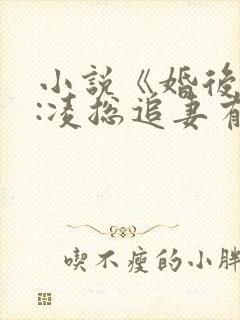 小說《婚後
:凌總追妻有
喫不瘦的小胖